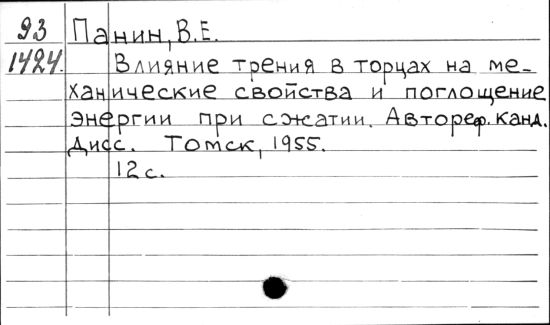 93 Панин, В.Е.
1424. Влияние трения в торцах на ме-
ханические свойства и поглощение
энергии при сжатии. Автореф. канд.
дисс. Томск, 1955.
12 с.